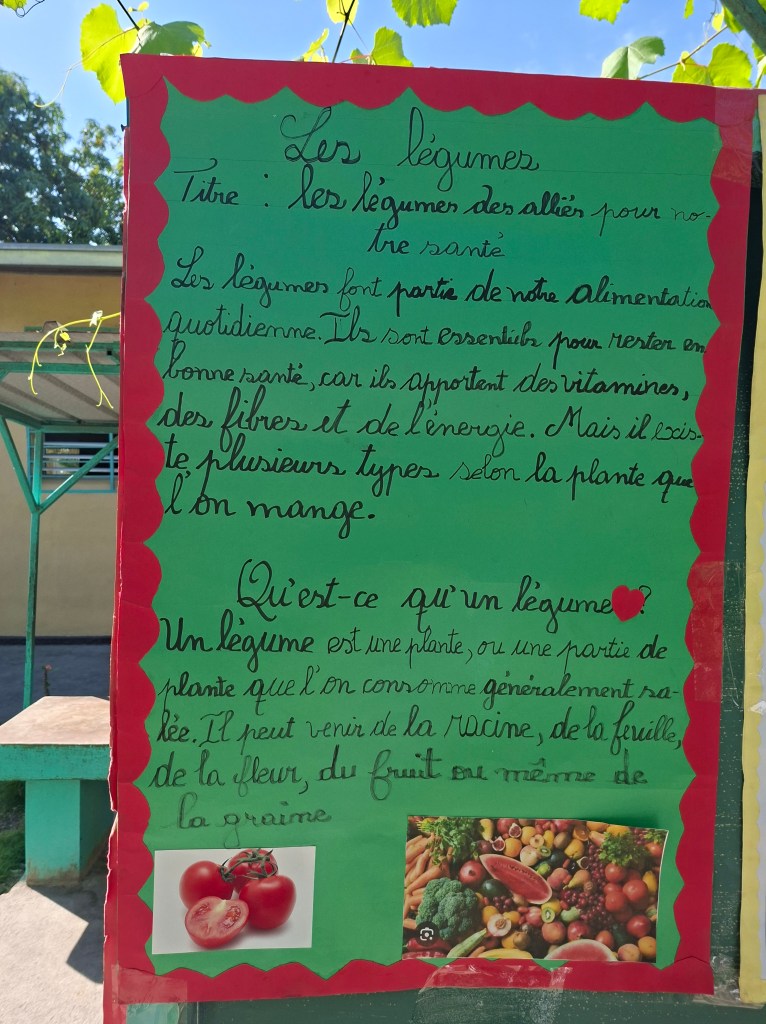 Les légumes
Titre : les légumes des alliés pour no-
tre santé
Les légumes font partie de notre alimentation
quotidienne. Ils sont essentiels pour rester en
bonne santé, car ils apportent des vitamines,
des fibres et de l'énergie. Mais il exis-
te plusieurs types selon la plante que
l'on mange.
Qu'est-ce qu'un légume ?
Un légume est une plante, ou une partie de
plante que l'on consomme généralement sa-
lée. Il peut venir de la racine, de la feuille,
de la fleur, du fruit ou même de
la graine